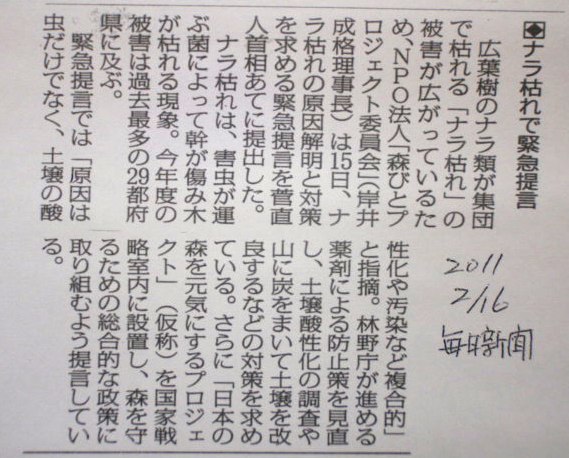 ◆ナラ枯れで緊急提言
広葉樹のナラ類が集団
で枯れる「ナラ枯れ」の
被害が広がっているた
め、NPO法人「森びとプ
ロジェクト委員会」(岸井
成格理事長)は15日、ナ
ラ枯れの原因解明と対策
を求める緊急提言を菅直
人首相あてに提出した。
ナラ枯れは、害虫が運
ぶ菌によって幹が傷み木
が枯れる現象。今年度の
被害は過去最多の29都府
県に及ぶ。
緊急提言では「原因は
虫だけでなく、土壌の酸
性化や汚染など複合的」
と指摘。林野庁が進める
薬剤による防止策を見直
し、土壌酸性化の調査や
山に炭をまいて土壌を改
良するなどの対策を求め
ている。さらに「日本の
森を元気にするプロジェ
クト」(仮称)を国家戦
略室内に設置し、森を守
るための総合的な政策に
取り組むよう提言してい
る。
2011
2/16
毎日新聞